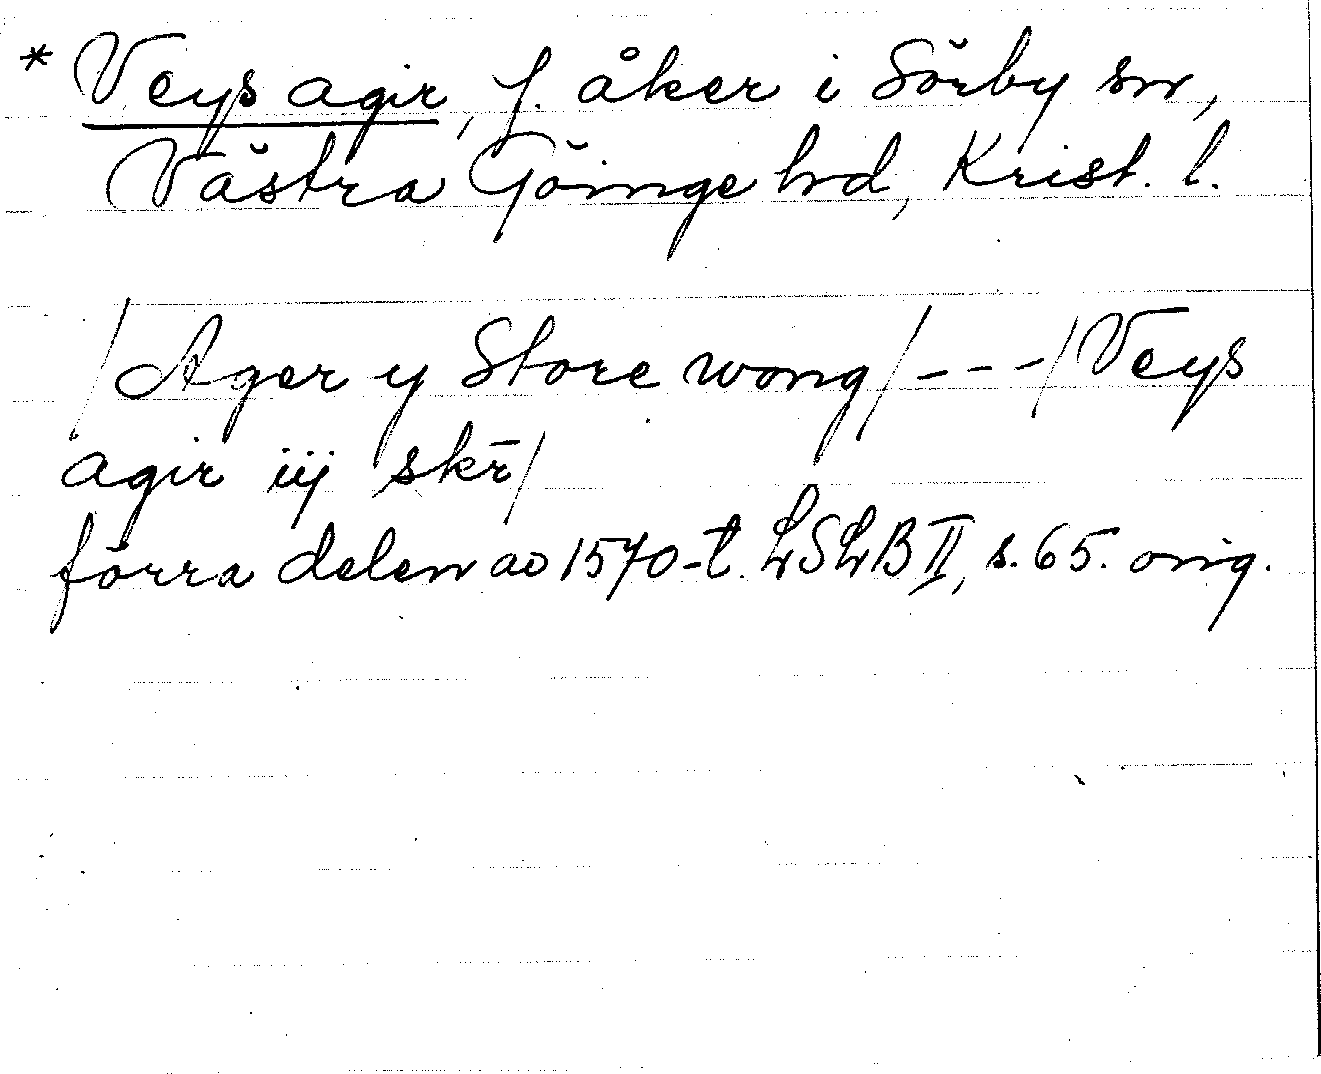 * Veys agir, f. åker i Sörby sn,
Västra Göinge hd, Krist. l.
/Ager y Store wong/ --- /Veys
agir iij skr̄/
förra delen av 1570-t. LSLB II, s. 65. orig.